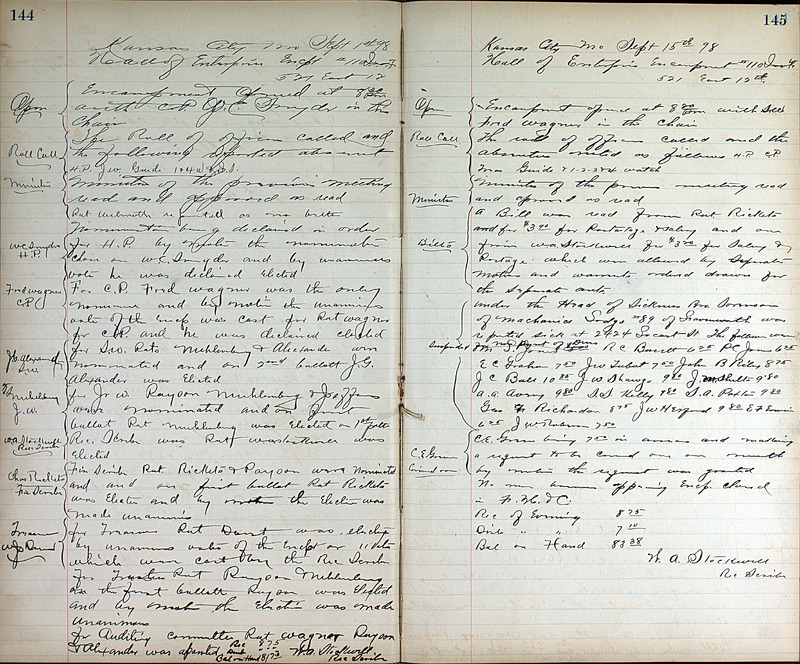 144
Kansas City Mo Sept 1st 98
Hall of Enterprise Encpt #110 I.O.O.F.
521 East 12
Opn
Encampment Opened at 8 30 pm
with C.P. W.C. Snyder in the
Chair
Roll Call
The Roll of officers called and
the following reported absent
H.P. J.W. Guide 1 2 4 W
Minutes
Minutes of the previous meeting
read and approved as read
Nominations being declared in order
W.C. Snyder
H.P.
for H.P. by motion the nominations
close on W.C. Snyder and by unanimous
vote he was declared Elected
Fred Wagner
C.P.
For C.P. Fred Wagner was the only
nominee and by motion the unanimous
vote of the Encpt was cast for Pat Wagner
for C.P. and he was declared elected
J.G. Alexander
S.W.
for S.W. Pats Muhlenburg & Alexander were
nominated and on 2nd ballott J.G.
Alexander was Elected
Muhlenburg
J.W.
for J.W. Rayson Muhlenburg &
were nominated and on first
ballot Pat Muhlenburg was Elected on 1st ballot
W.A. Stockwell
Rec Scribe
Rec. Scribe was Pat Wa Stockwell was
Elected
Chas Ricketts
Fin Scribe
Fin Scribe Pat Ricketts & Rayson were nominated
and on first ballot Pat Ricketts
was Elected and by motion the Election was
made unanimous
Treasurer
for Treasurer Pat was elected
by unanimous vote of the Encpt or 11 votes
which were cast by the Rec Scribe
For Trustee Pat Rayson & Muhlenburg
on the first ballott Rayson was Elected
and by motion the Election was made
unanimous
for Auditing committee Pat Wagner Rayson
& Alexander was appointed
Rec 8 75
Bal on Hand 81 73
W.A. Stockwell
Rec Scribe
145
Kansas City Mo Sept 15th 98
Hall of Enterprise Encampment #110 I.O.O.F.
521 East 12th
Opn
Encampment opened at 8 20 pm with
Fred Wagner in the Chair
Roll Call
The roll of officers called and the
absentees noted as follows H.P. C.P.
Guide 1-2-3 & 4 watch
Minutes
Minutes of the previous meeting read
and approved as read
Bills
A Bill was read from Pat Ricketts
for $3.00 for Postage & Salary and one
from W.A. Stockwell for $3.00 for Salary &
Postage which were allowed by Separate
motion and warrants ordered drawn for
the Separate amts
Under the Head of Sickness Bro
of Mechanics Lodge #89 of Leavenworth was
reported sick at 2424 Locust St The following were
Suspended
R C Barrett 6 25
E C Graham 7 50 J W 7 50 John B Riley 8 75
J C Ball 10 J W 9 80 9 80
A.A. Avery 9 80 S.S. Kelley 9 80 S.A. Paxton 9 80
Geo F Richardson 8 75 J W Hereford 9 80 E F
6 25 J W 7 50
C.E. Green
C.E. Green being 7 in arrears and making
a request to be carried one more month
by motion the request was granted
No business appearing Encp. Closed
in F. H. & C.
Rec of Evening 8 75
Disb " " 7 10
Bal on Hand 83 38
W. A. Stockwell
Rec Scribe